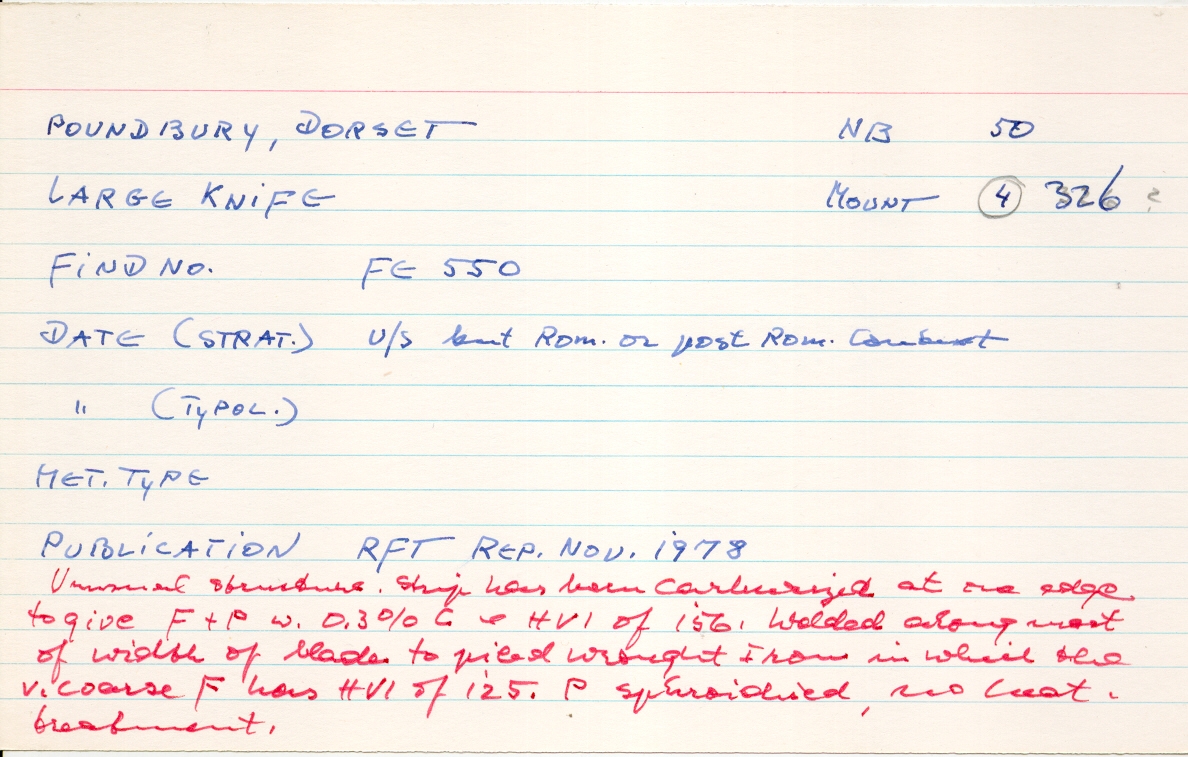 POUNDBURY, DORSET NB 50
LARGE KNIFE MOUNT 4 326 ?
FIND NO. FE 550
DATE (STRAT.) U/S but Rom. or post Rom. Context
" (TYPOL.)
MET. TYPE
PUBLICATION RFT REP. NOV. 1978
Unusual structure. Strip has been carburized at one edge
to give F+P w. 0.3% C & HV1 of 156. Welded along most
of width of blade to piled wrought iron in which the
v. coarse F has HV1 of 125. P spheroidised, no heat-
treatment.